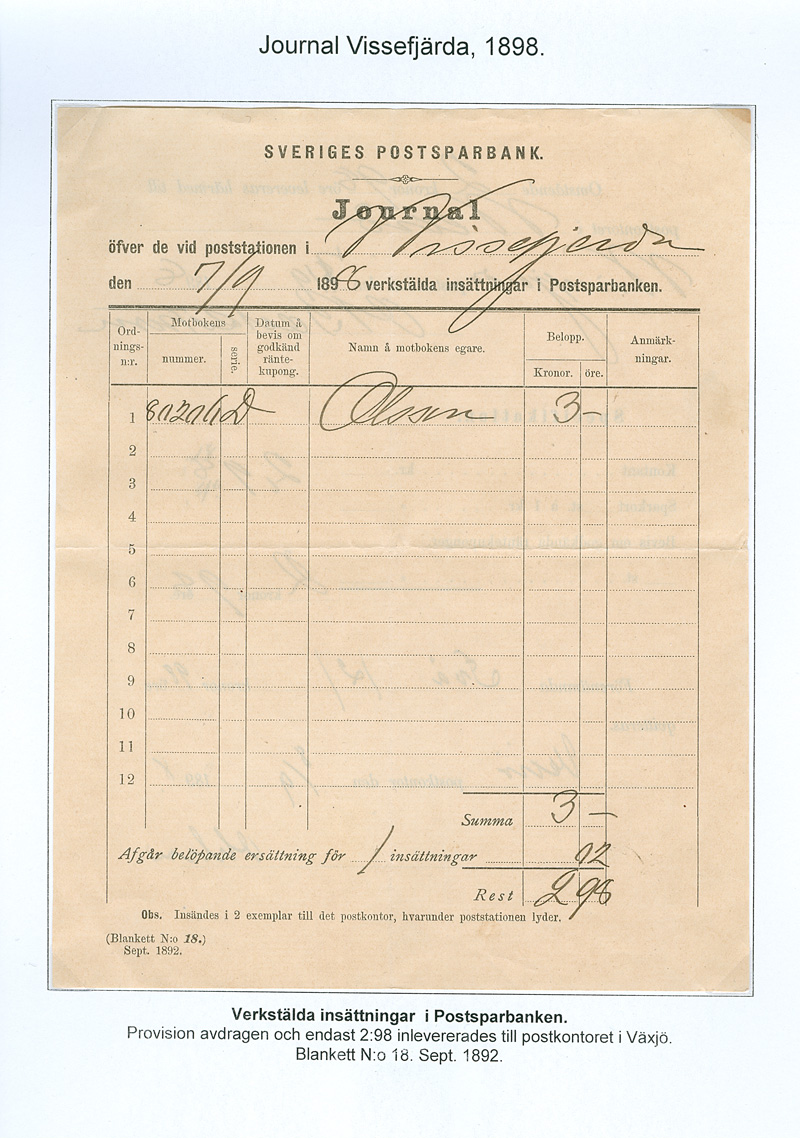 Journal Vissefjärda, 1898.
SVERIGES POSTSPARBANK.
Journal
öfver de vid poststationen i Wissefjerda
den 7/9 1898 verkstälda insättningar i Postsparbanken.
Ord-
nings-
n:r.
Motbokens
nummer.
serie.
Datum å
bevis om
godkänd
ränte-
kupong.
Namn å motbokens egare.
Belopp.
Kronor. öre.
Anmärk-
ningar.
1 D Olsson 3 –
2
3
4
5
6
7
8
9
10
11
12
Summa 3 –
Afgår belöpande ersättning för 1 insättningar 02
Rest 2 98
Obs. Insändes i 2 exemplar till det postkontor, hvarunder poststationen lyder.
(Blankett N:o 18.)
Sept. 1892.
Verkstälda insättningar i Postsparbanken.
Provision avdragen och endast 2:98 inlevererades till postkontoret i Växjö.
Blankett N:o 18. Sept. 1892.